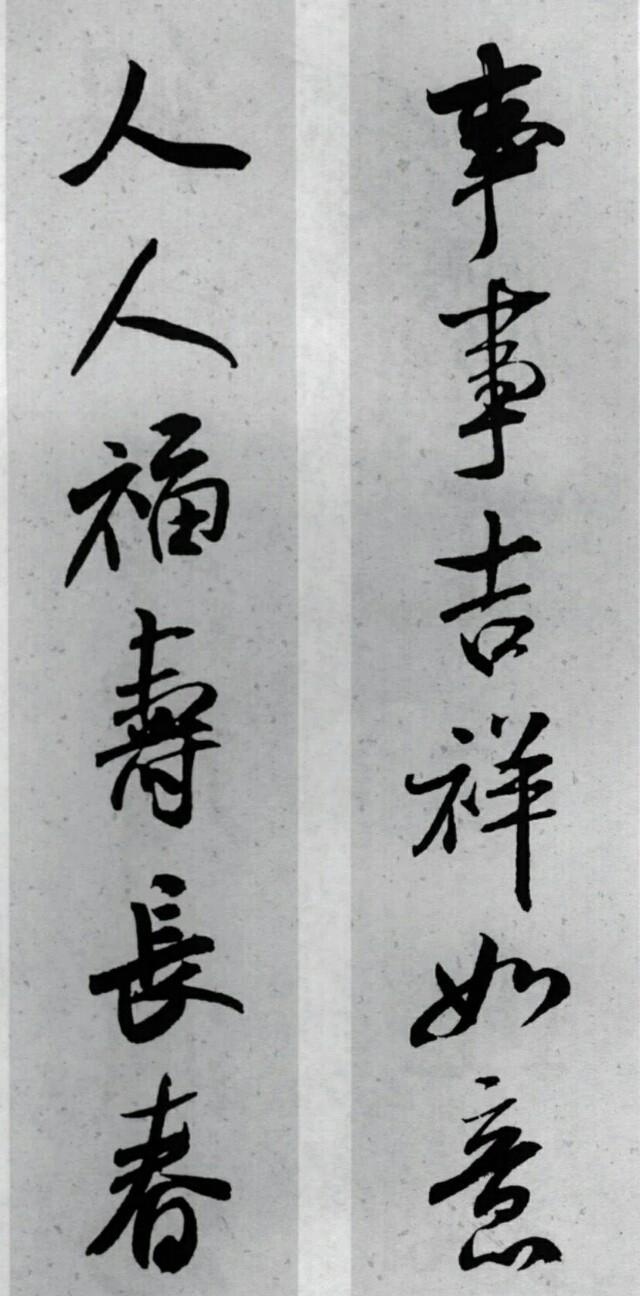 事事吉祥如意
人人福壽長春